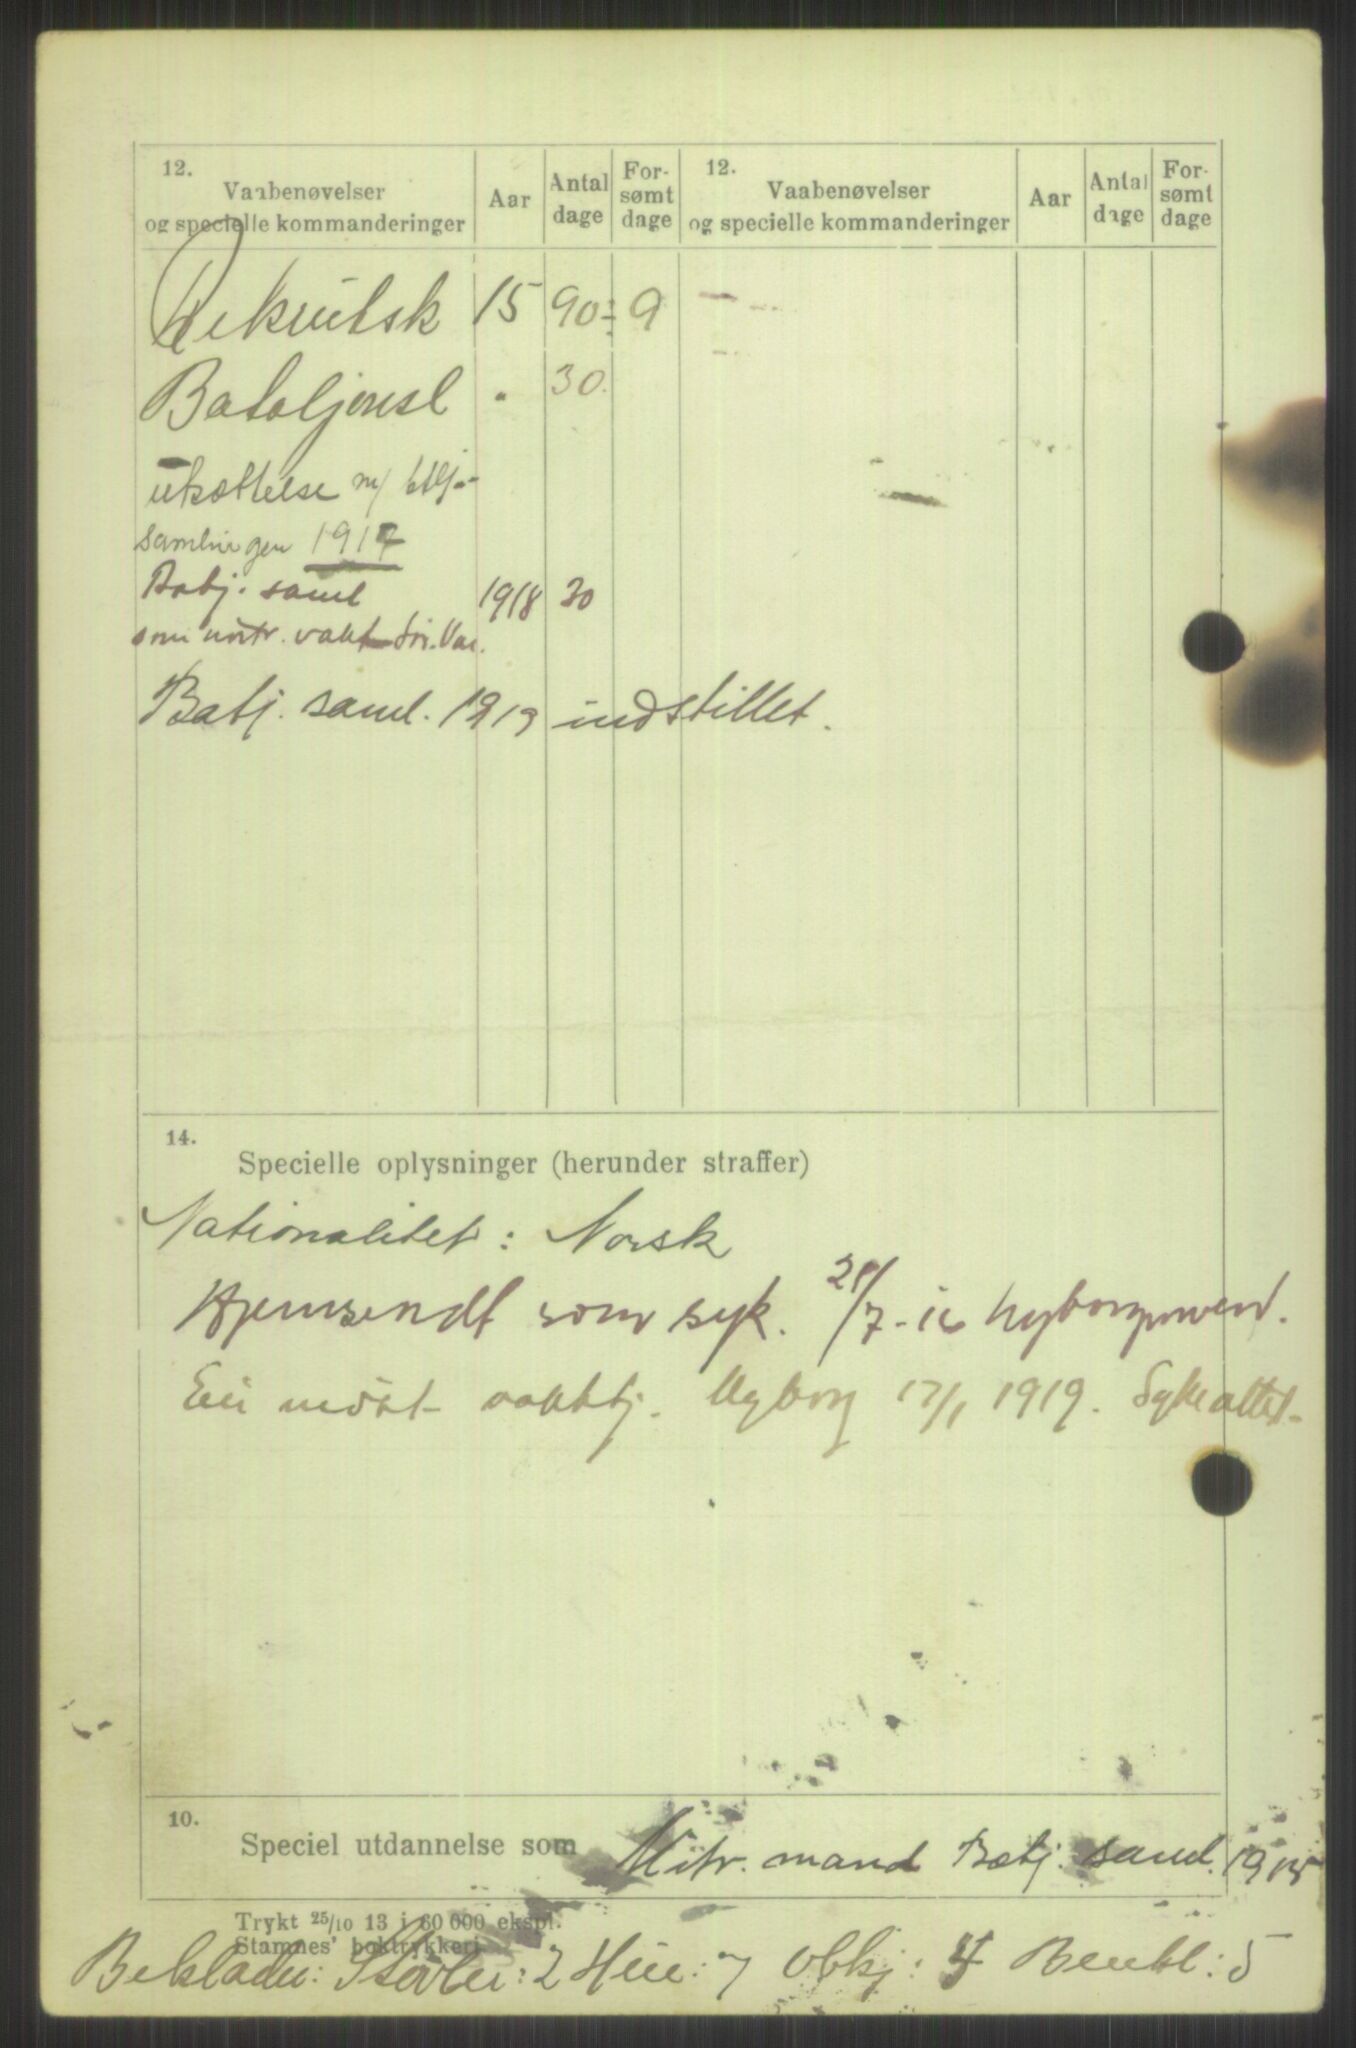 12.
Vaabenøvelser
og specielle kommanderinger
Aar
Antal
dage
For-
sømt
dage
12.
Vaabenøvelser
og specielle kommanderinger
Aar
Antal
dage
For-
sømt
dage
Rekrutsk 15 90 ÷ 9
Bataljonsl " 30.
utsættelse m/ btlj.-
samlingen 1917
Batj. saml 1918 30
som mitr. vakt
Batj. saml. 1919 indstillet.
14.
Specielle oplysninger (herunder straffer)
Nationalitet: Norsk
Hjemsendt som syk. 21/7-16 Nyborgmoen.
Ei møst vakttj. Nyborg 17/1 1919. Sykeattest.
10.
Speciel utdannelse som Mitr. mand Batj. saml. 1915
Trykt 25/10 13 i 60 000 ekspl.
Stamnes' boktrykkeri
Beklædn: Støvler: 2 Hue: 7 Vbkj: 4 Benkl: 5